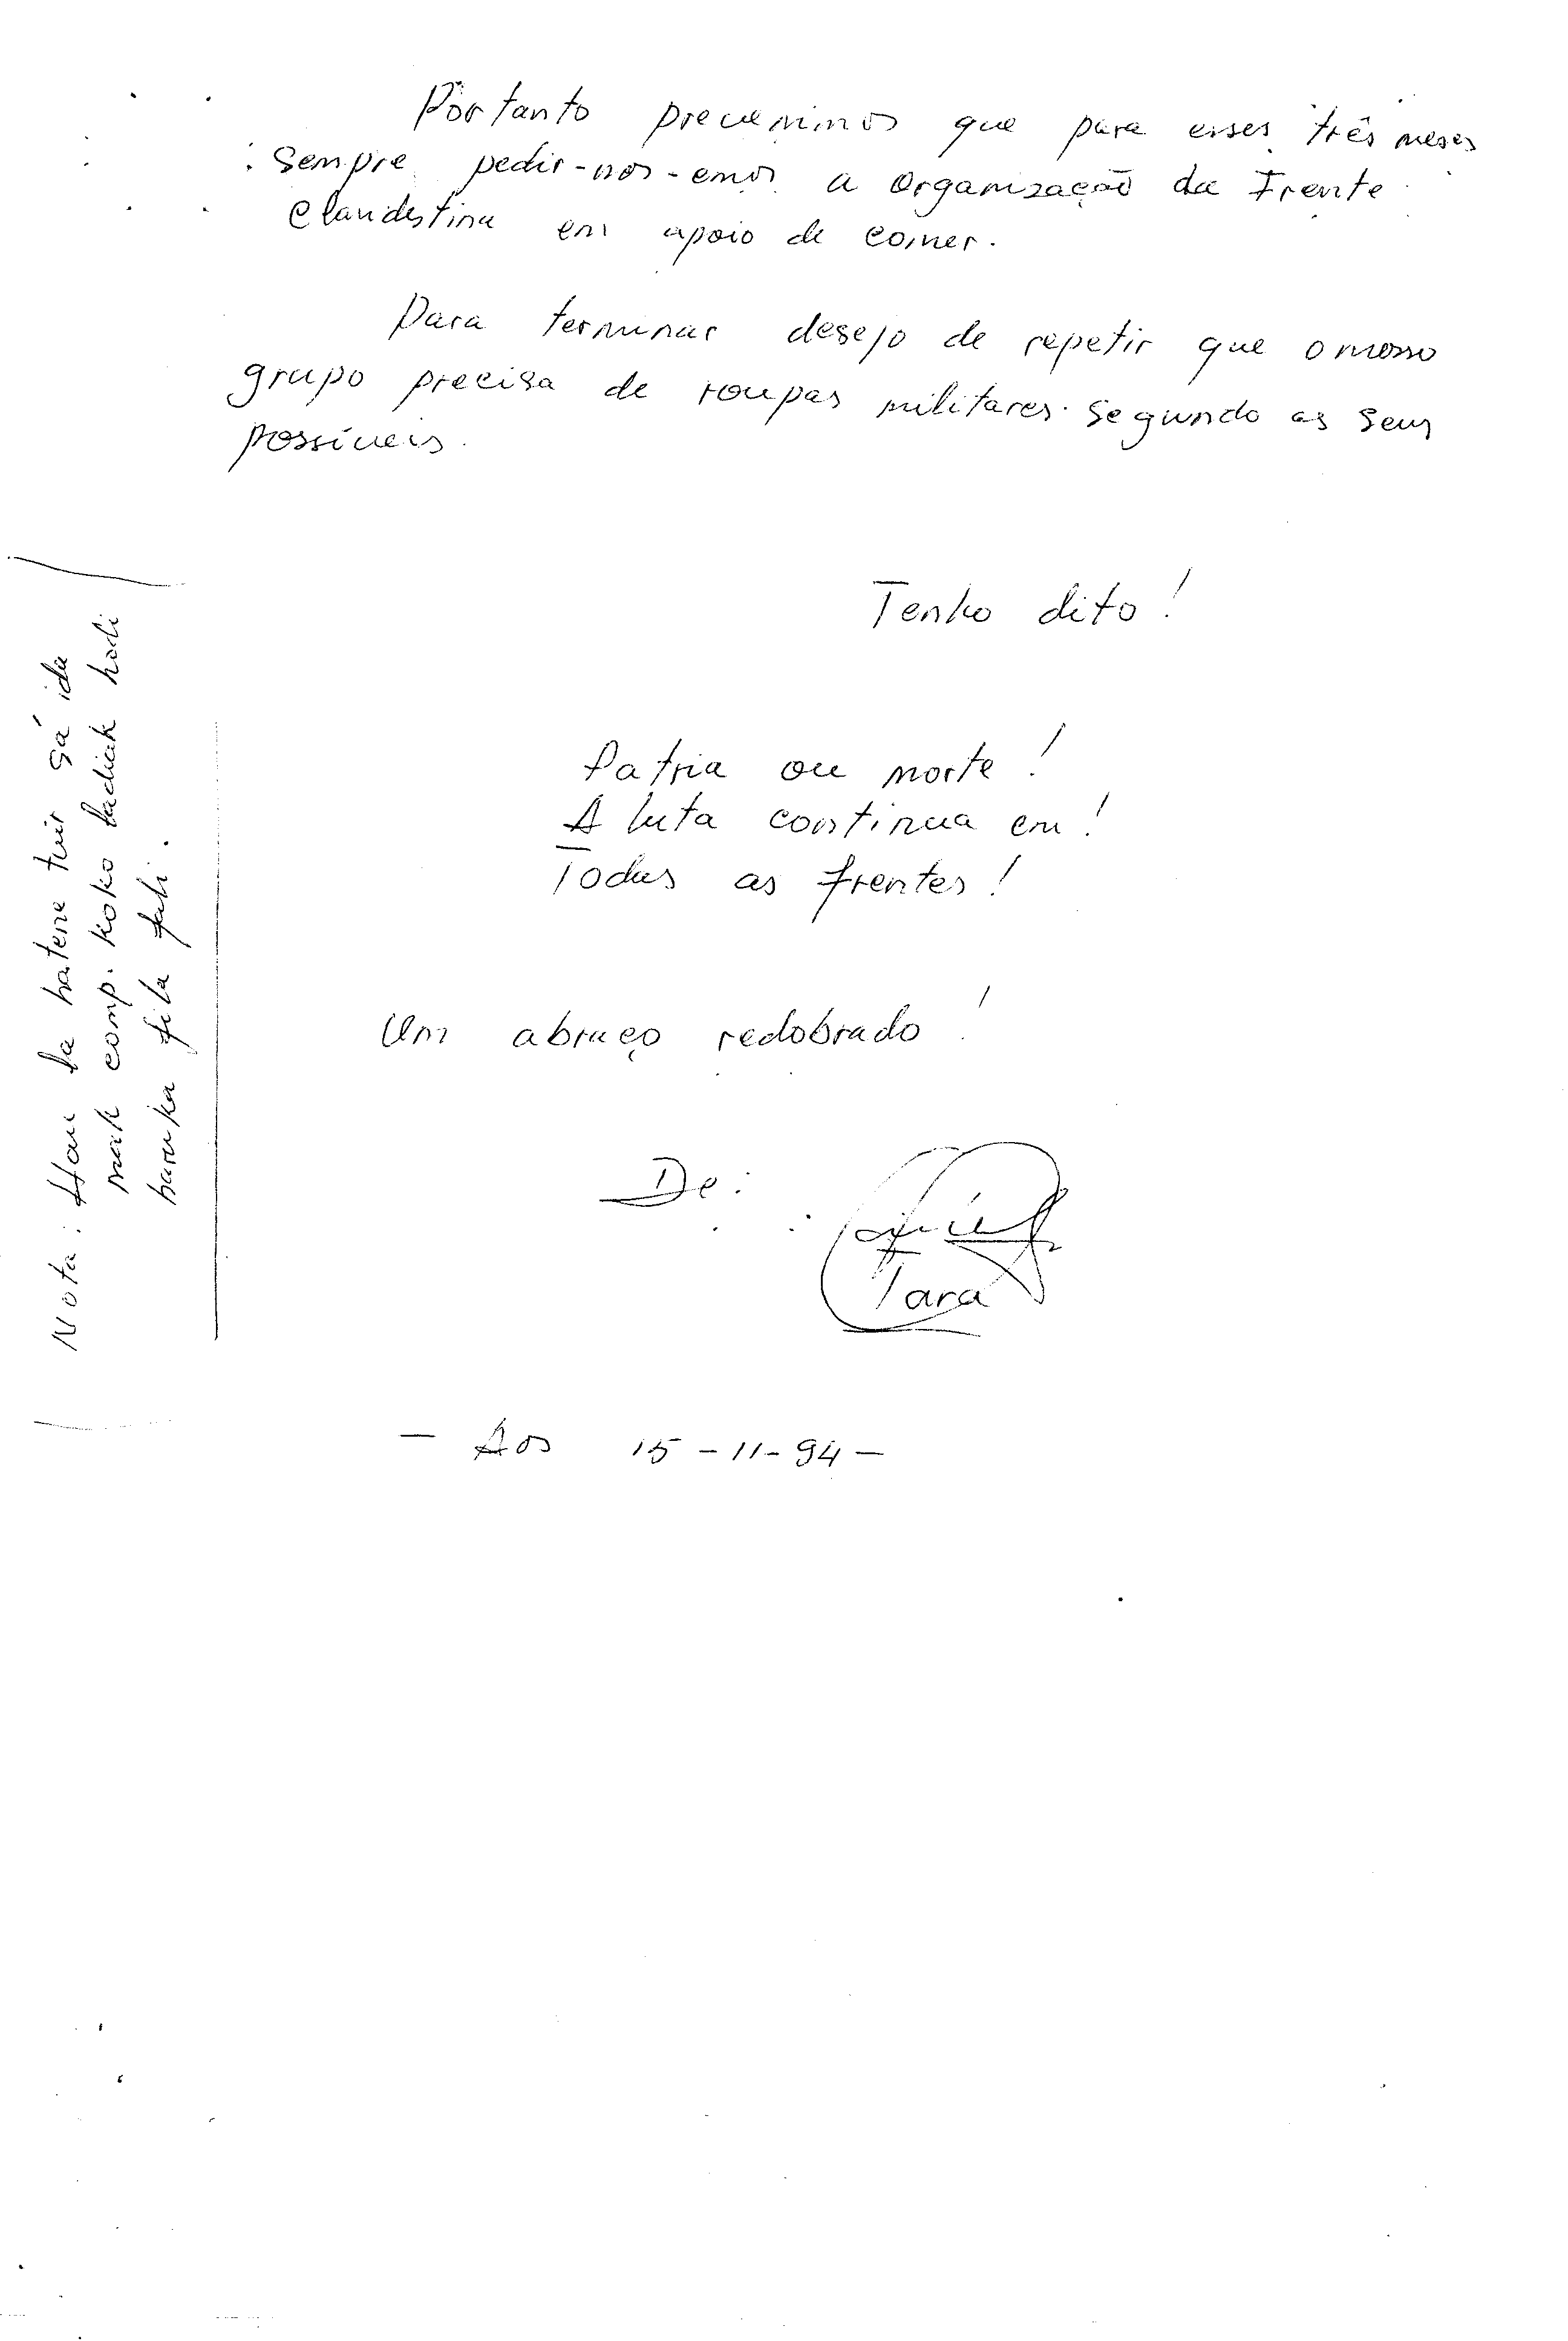 Portanto prevenimos que para esses três meses
sempre pedir-nos-emos a Organização da Frente
Clandestina em apoio de comer.
Para terminar desejo de repetir que o nosso
grupo precisa de roupas militares segundo as seus
possíveis.
Tenho dito!
Patria ou morte!
A luta continua em!
Todas as frentes!
Um abraço redobrado!
De:
Tara
- Aos 15-11-94-
Nota: Hau la hatene tuir sá ida
mak comp. koko ladiak hodi
haruka fila fali.